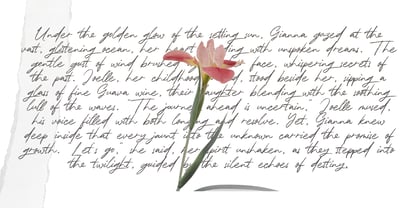 Under the golden glow of the setting sun, Gianna gazed at the
vast, glistening ocean, her heart with unspoken dreams. The
gentle gust of wind brushed face, whispering secrets of
the past. Joelle, her childhood stood beside her, sipping a
glass of fine Guava wine, their laughter blending with the soothing
lull of the waves. "The journey ahead is uncertain," Joelle mused,
his voice filled with both longing and resolve. Yet, Gianna knew
deep inside that every jaunt into the unknown carried the promise of
growth. "Let's go," she said, her spirit unshaken, as they stepped into
the twilight, guided by the silent echoes of destiny.